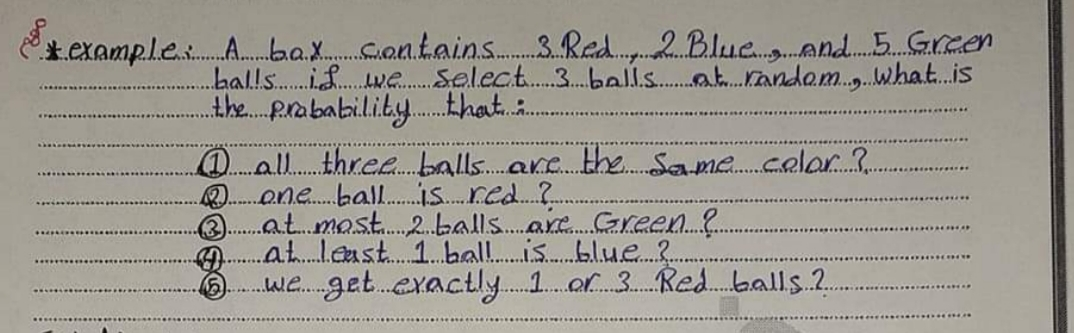 * example: A box contains 3 Red, 2 Blue, and 5 Green
balls if we select 3 balls at random, what is
the probability that:
① all three balls are the same color?
② one ball is red?
③ at most 2 balls are Green?
④ at least 1 ball is blue?
⑤ we get exactly 1 or 3 Red balls?